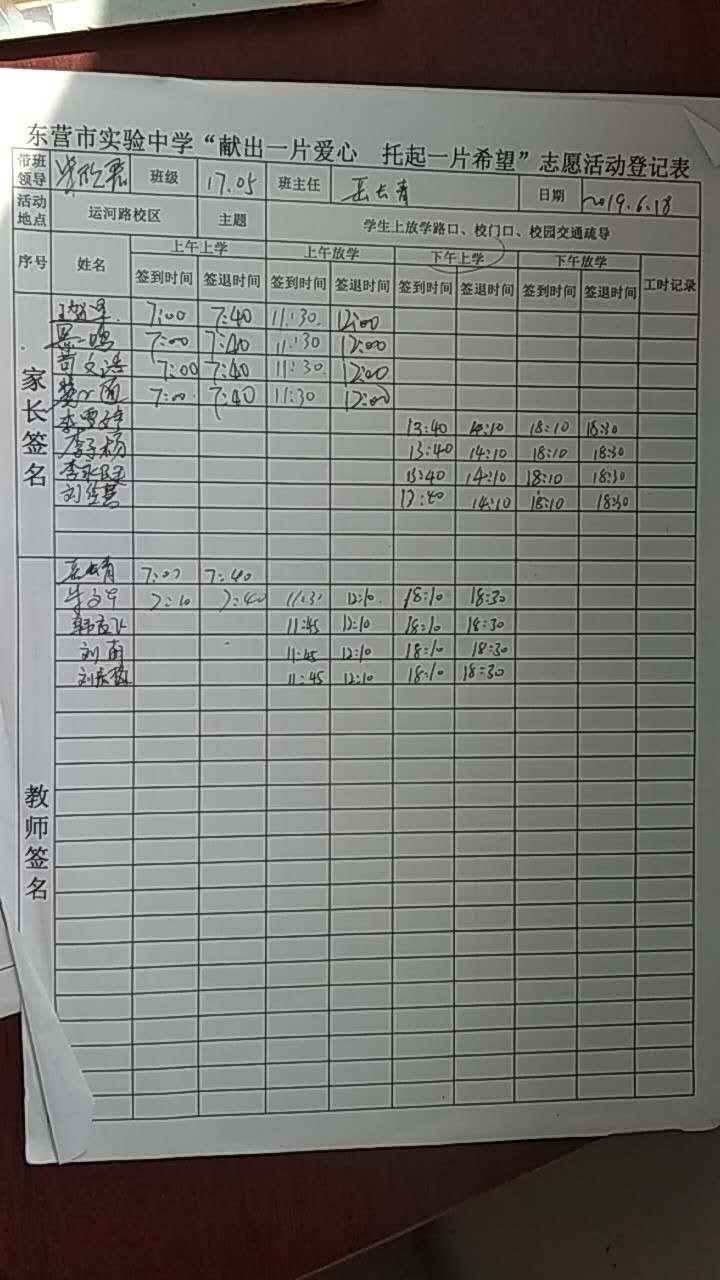 东营市实验中学“献出一片爱心 托起一片希望”志愿活动登记表
带班领导 班级 17.05 班主任 岳长青 日期 2019.6.18
活动地点 运河路校区 主题 学生上放学路口、校门口、校园交通疏导
序号 姓名 上午上学 上午放学 下午上学 下午放学 工时记录
签到时间 签退时间 签到时间 签退时间 签到时间 签退时间 签到时间 签退时间
家长签名
7:00 7:40 11:30 12:00
7:00 7:40 11:30 12:00
苟文浩 7:00 7:40 11:30 12:00
7:00 7:40 11:30 12:00
李雪婷 13:40 14:10 18:10 18:30
李子杨 13:40 14:10 18:10 18:30
13:40 14:10 18:10 18:30
13:40 14:10 18:10 18:30
教师签名
岳长青 7:00 7:40
7:10 7:40 11:31 12:10 18:10 18:30
11:45 12:10 18:10 18:30
刘南 11:45 12:10 18:10 18:30
11:45 12:10 18:10 18:30